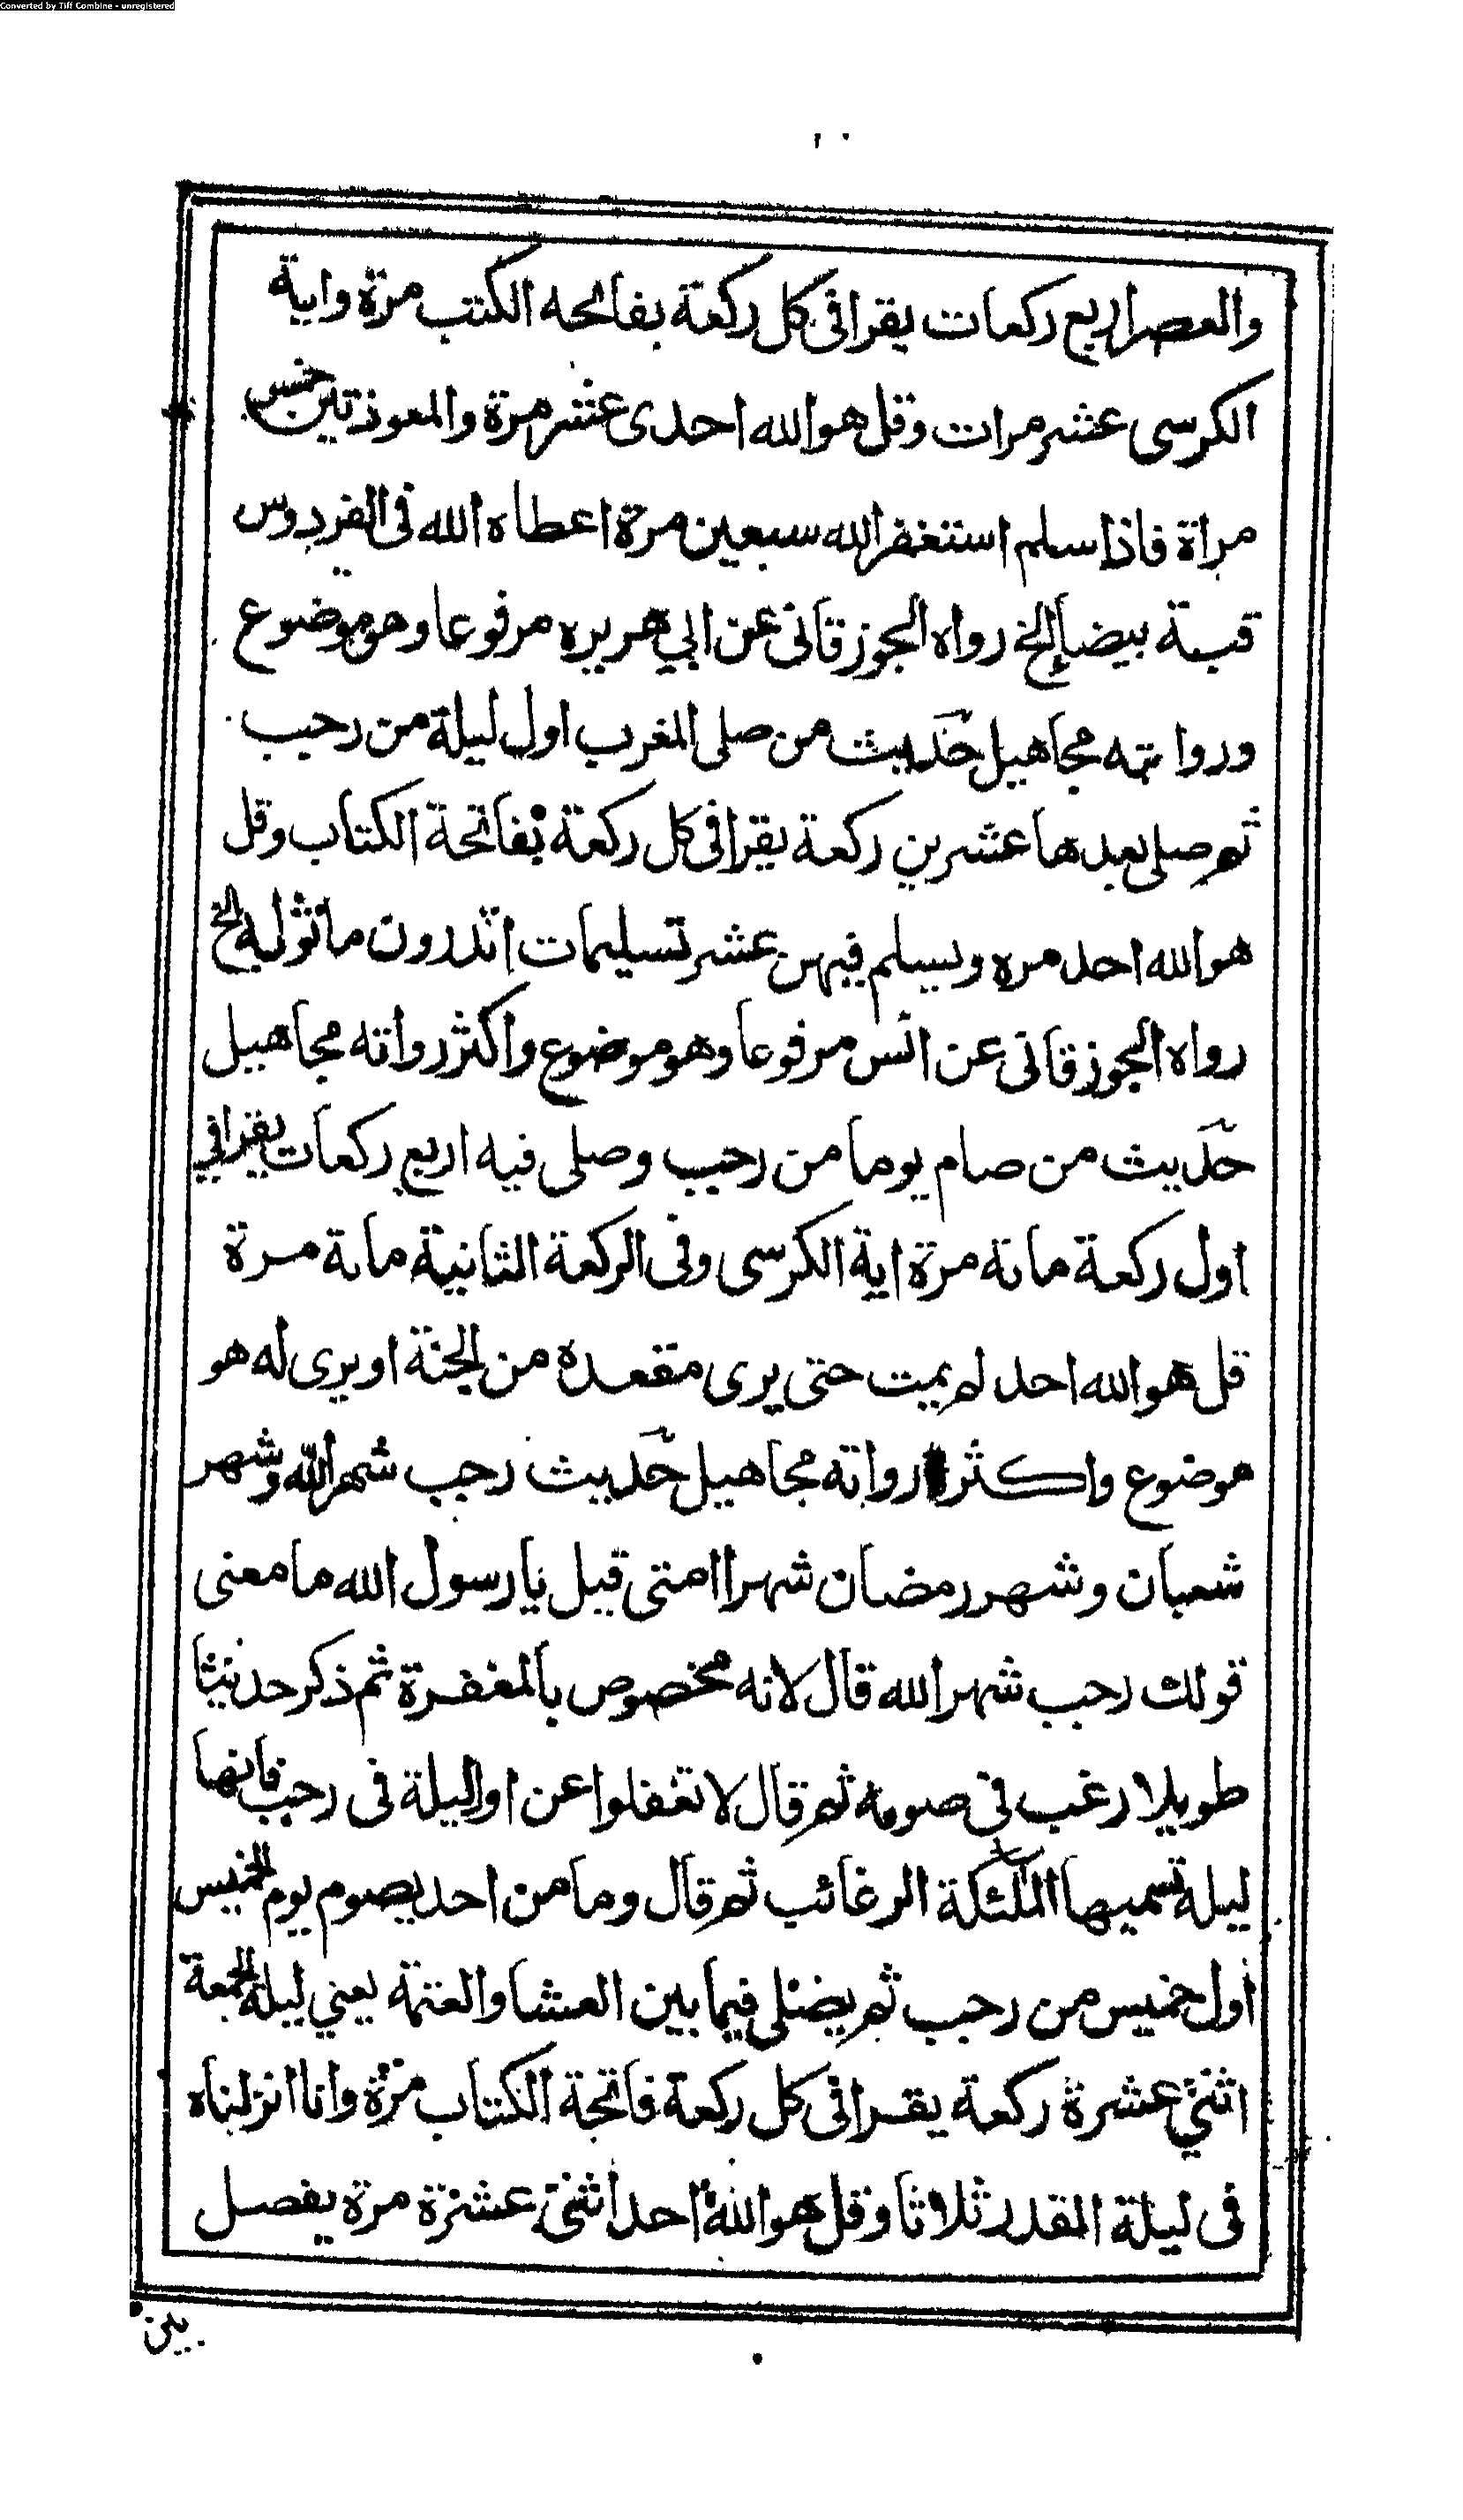 Converted by Tiff Combine - unregistered
والعصر اربع ركعات يقرا فى كل ركعة بفاتحه الكتب مرة واية
الكرسى عشر مرات وقل هو الله احدى عشر مرة والمعوذتين خمس
مراة فاذا سلم استغفر الله سبعين مرة اعطاه الله فى الفردوس
قبة بيضا إلخ رواه الجوزقانى عن ابي هريره مرفوعا وهو موضوع
ورواته مجاهيل حديث من صلى المغرب اول ليلة من رجب
ثم صلى بعدها عشرين ركعة يقرا فى كل ركعة بفاتحة الكتاب وقل
هو الله احد مره ويسلم فيهن عشر تسليمات اتدرون ما ثوابه إلخ
رواه الجوزقانى عن انس مرفوعا وهو موضوع واكثر رواته مجاهيل
حديث من صام يوما من رجب وصلى فيه اربع ركعات يقرا في
اول ركعة مائة مرة اية الكرسى وفى الركعة الثانية مائة مرة
قل هو الله احد لم يمت حتى يرى مقعده من الجنة او يرى له هو
موضوع واكثر رواته مجاهيل حديث رجب شهر الله وشهر
شعبان وشهر رمضان شهرا امتى قيل يا رسول الله ما معنى
قولك رجب شهر الله قال لانه مخصوص بالمغفرة ثم ذكر حديثا
طويلا رغب فى صومه ثم قال لا تغفلوا عن اول ليلة فى رجب فانها
ليلة تسميها الملئكة الرغائب ثم قال وما من احد يصوم يوم الخميس
اول خميس من رجب ثم يصلى فيما بين العشا والعتمة يعني ليلة الجمعة
اثنتي عشرة ركعة يقرا فى كل ركعة فاتحة الكتاب مرة وانا انزلناه
فى ليلة القدر ثلاثا وقل هو الله احد اثنتى عشرة مرة يفصل
بين